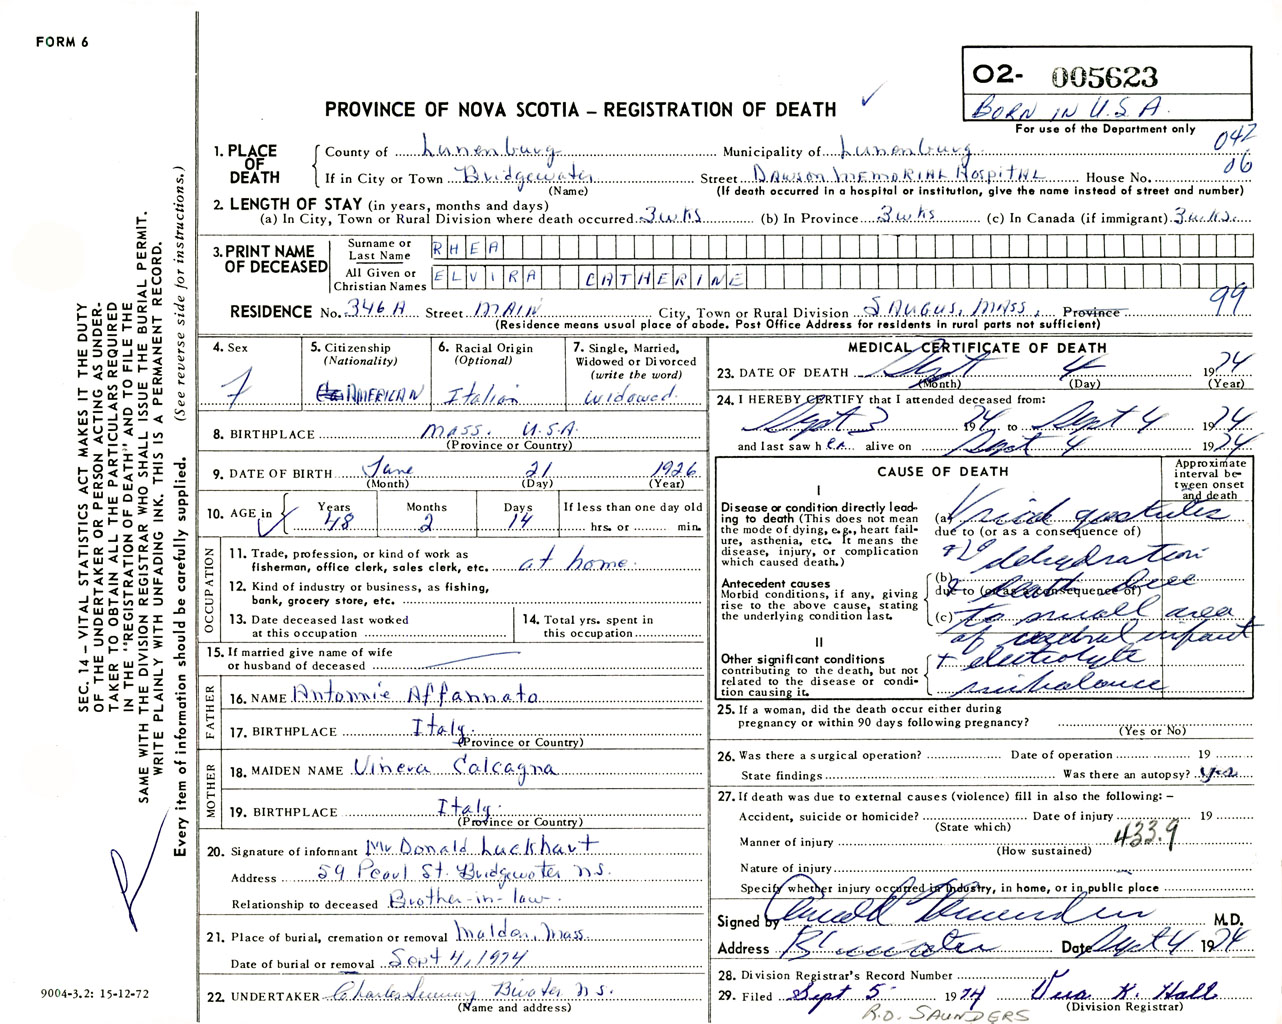 FORM 6
O2- 005623
BORN IN U.S.A.
For use of the Department only
PROVINCE OF NOVA SCOTIA – REGISTRATION OF DEATH
042
06
1. PLACE OF DEATH
County of Lunenburg Municipality of Lunenburg
If in City or Town Bridgewater Street DAWSON MEMORIAL HOSPITAL House No.
(Name) (If death occurred in a hospital or institution, give the name instead of street and number)
2. LENGTH OF STAY (in years, months and days)
(a) In City, Town or Rural Division where death occurred 3 wks (b) In Province 3 wks (c) In Canada (if immigrant) 3 wks.
3. PRINT NAME OF DECEASED
Surname or Last Name RHEA
All Given or Christian Names ELVIRA CATHERINE
RESIDENCE No. 346A Street MAIN City, Town or Rural Division SAUGUS, MASS, Province 99
(Residence means usual place of abode. Post Office Address for residents in rural parts not sufficient)
4. Sex
f
5. Citizenship
(Nationality)
AMERICAN
6. Racial Origin
(Optional)
Italian
7. Single, Married,
Widowed or Divorced
(write the word)
widowed
8. BIRTHPLACE MASS. U.S.A.
(Province or Country)
9. DATE OF BIRTH June 21 1926
(Month) (Day) (Year)
10. AGE in
Years Months Days If less than one day old
48 2 14 hrs. or min.
OCCUPATION
11. Trade, profession, or kind of work as
fisherman, office clerk, sales clerk, etc. at home.
12. Kind of industry or business, as fishing,
bank, grocery store, etc.
13. Date deceased last worked
at this occupation
14. Total yrs. spent in
this occupation
15. If married give name of wife
or husband of deceased
FATHER
16. NAME Antonnie Affannato
17. BIRTHPLACE Italy
(Province or Country)
MOTHER
18. MAIDEN NAME Vineva Calcagna
19. BIRTHPLACE Italy
(Province or Country)
20. Signature of informant Mr Donald Luckhart
Address 59 Pearl St. Bridgewater N.S.
Relationship to deceased Brother-in-law.
21. Place of burial, cremation or removal Malden, Mass
Date of burial or removal Sept 4, 1974
22. UNDERTAKER Charles Bwater N.S.
(Name and address)
MEDICAL CERTIFICATE OF DEATH
23. DATE OF DEATH Sept 4 1974
(Month) (Day) (Year)
24. I HEREBY CERTIFY that I attended deceased from:
Sept 3 1974 to Sept 4 1974
and last saw h er alive on Sept 4 1974
CAUSE OF DEATH
Approximate
interval be-
tween onset
and death
I
Disease or condition directly lead-
ing to death (This does not mean
the mode of dying, e.g., heart fail-
ure, asthenia, etc. It means the
disease, injury, or complication
which caused death.)
(a)
due to (or as a consequence of)
dehydration
Antecedent causes
Morbid conditions, if any, giving
rise to the above cause, stating
the underlying condition last.
(b) death due
due to (or as a consequence of)
(c) to small area
of cerebral infarct
II
Other significant conditions
contributing to the death, but not
related to the disease or condi-
tion causing it.
+ electrolyte
imbalance
25. If a woman, did the death occur either during
pregnancy or within 90 days following pregnancy?
(Yes or No)
26. Was there a surgical operation? Date of operation 19
State findings Was there an autopsy? yes
27. If death was due to external causes (violence) fill in also the following: –
Accident, suicide or homicide? Date of injury 19
(State which)
Manner of injury 433.9
(How sustained)
Nature of injury
Specify whether injury occurred in Industry, in home, or in public place
Signed by M.D.
Address B'water Date Sept 4 1974
28. Division Registrar's Record Number
29. Filed Sept 5 1974 Vera K. Hall
(Division Registrar)
R.D. SAUNDERS
SEC. 14 – VITAL STATISTICS ACT MAKES IT THE DUTY
OF THE UNDERTAKER OR PERSON ACTING AS UNDER-
TAKER TO OBTAIN ALL THE PARTICULARS REQUIRED
IN THE "REGISTRATION OF DEATH" AND TO FILE THE
SAME WITH THE DIVISION REGISTRAR WHO SHALL ISSUE THE BURIAL PERMIT.
WRITE PLAINLY WITH UNFADING INK. THIS IS A PERMANENT RECORD.
Every item of information should be carefully supplied. (See reverse side for instructions.)
9004-3.2: 15-12-72